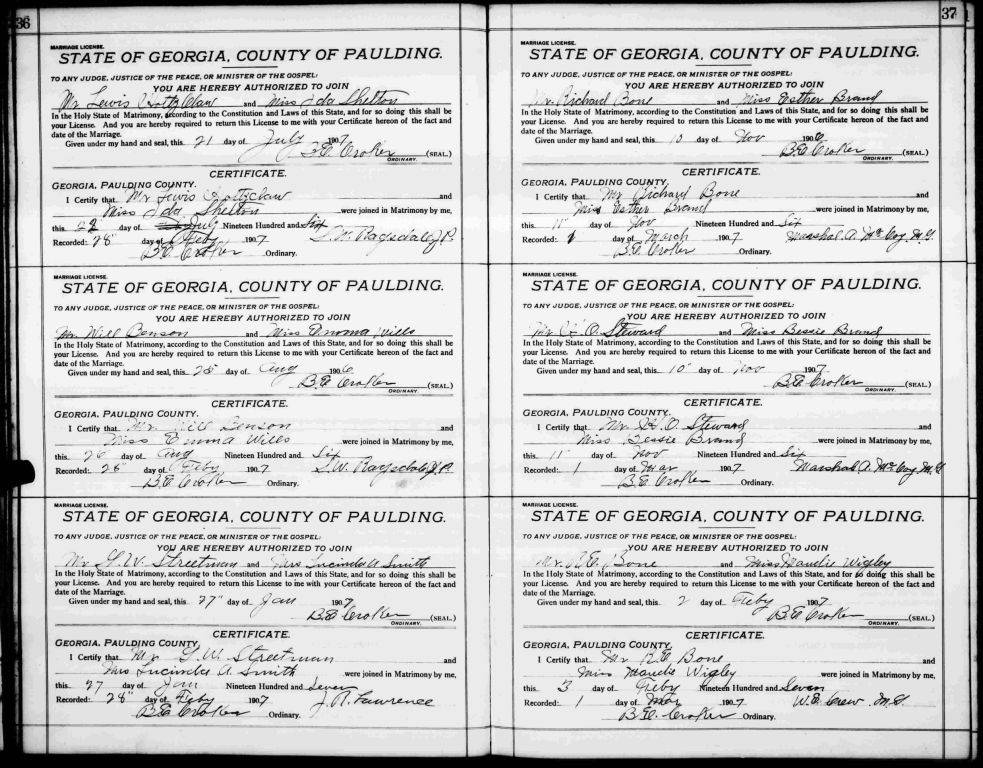 36
MARRIAGE LICENSE.
STATE OF GEORGIA, COUNTY OF PAULDING.
TO ANY JUDGE, JUSTICE OF THE PEACE, OR MINISTER OF THE GOSPEL:
YOU ARE HEREBY AUTHORIZED TO JOIN
Mr Lewis Holtzclaw and Miss Ida Shelton
In the Holy State of Matrimony, according to the Constitution and Laws of this State, and for so doing this shall be
your License. And you are hereby required to return this License to me with your Certificate hereon of the fact and
date of the Marriage.
Given under my hand and seal, this 21 day of July 1907
B.E. Croker (SEAL.)
ORDINARY.
CERTIFICATE.
GEORGIA, PAULDING COUNTY.
I Certify that Mr Lewis Holtzclaw and
Miss Ida Shelton were joined in Matrimony by me,
this 22 day of July Nineteen Hundred and Six
Recorded: 28" day of Feby 1907 S.W. Ragsdale J.P.
B.E. Croker Ordinary.
MARRIAGE LICENSE.
STATE OF GEORGIA, COUNTY OF PAULDING.
TO ANY JUDGE, JUSTICE OF THE PEACE, OR MINISTER OF THE GOSPEL:
YOU ARE HEREBY AUTHORIZED TO JOIN
Mr. Will Benson and Miss Emma Wills
In the Holy State of Matrimony, according to the Constitution and Laws of this State, and for so doing this shall be
your License. And you are hereby required to return this License to me with your Certificate hereon of the fact and
date of the Marriage.
Given under my hand and seal, this 25" day of Aug 1906
B.E. Croker (SEAL.)
ORDINARY.
CERTIFICATE.
GEORGIA, PAULDING COUNTY.
I Certify that Mr. Will Benson and
Miss Emma Wills were joined in Matrimony by me,
this 26 day of Aug Nineteen Hundred and Six
Recorded: 28" day of Feby 1907 S.W. Ragsdale J.P.
B.E. Croker Ordinary.
MARRIAGE LICENSE.
STATE OF GEORGIA, COUNTY OF PAULDING.
TO ANY JUDGE, JUSTICE OF THE PEACE, OR MINISTER OF THE GOSPEL:
YOU ARE HEREBY AUTHORIZED TO JOIN
Mr G.W. Streetman and Mrs Lucinda A Smith
In the Holy State of Matrimony, according to the Constitution and Laws of this State, and for so doing this shall be
your License. And you are hereby required to return this License to me with your Certificate hereon of the fact and
date of the Marriage.
Given under my hand and seal, this 27" day of Jan 1907
B.E. Croker (SEAL.)
ORDINARY.
CERTIFICATE.
GEORGIA, PAULDING COUNTY.
I Certify that Mr G.W. Streetman and
Mrs Lucinda A. Smith were joined in Matrimony by me,
this 27 day of Jan Nineteen Hundred and Seven
Recorded: 28" day of Feby 1907 J.R. Lawrence
B.E. Croker Ordinary.
37
MARRIAGE LICENSE.
STATE OF GEORGIA, COUNTY OF PAULDING.
TO ANY JUDGE, JUSTICE OF THE PEACE, OR MINISTER OF THE GOSPEL:
YOU ARE HEREBY AUTHORIZED TO JOIN
Mr. Richard Bone and Miss Esther Brand
In the Holy State of Matrimony, according to the Constitution and Laws of this State, and for so doing this shall be
your License. And you are hereby required to return this License to me with your Certificate hereon of the fact and
date of the Marriage.
Given under my hand and seal, this 10 day of Nov 1906
B.E. Croker (SEAL.)
ORDINARY.
CERTIFICATE.
GEORGIA, PAULDING COUNTY.
I Certify that Mr Richard Bone and
Miss Esther Brand were joined in Matrimony by me,
this 11" day of Nov Nineteen Hundred and Six
Recorded: 1 day of March 1907 Marshal A. McCoy M.G.
B.E. Croker Ordinary.
MARRIAGE LICENSE.
STATE OF GEORGIA, COUNTY OF PAULDING.
TO ANY JUDGE, JUSTICE OF THE PEACE, OR MINISTER OF THE GOSPEL:
YOU ARE HEREBY AUTHORIZED TO JOIN
Mr. O. Steward and Miss Bessie Brand
In the Holy State of Matrimony, according to the Constitution and Laws of this State, and for so doing this shall be
your License. And you are hereby required to return this License to me with your Certificate hereon of the fact and
date of the Marriage.
Given under my hand and seal, this 10" day of Nov 1907
B.E. Croker (SEAL.)
ORDINARY.
CERTIFICATE.
GEORGIA, PAULDING COUNTY.
I Certify that Mr. O. Steward and
Miss Bessie Brand were joined in Matrimony by me,
this 11" day of Nov Nineteen Hundred and Six
Recorded: 1 day of Mar 1907 Marshal A. McCoy M.G.
B.E. Croker Ordinary.
MARRIAGE LICENSE.
STATE OF GEORGIA, COUNTY OF PAULDING.
TO ANY JUDGE, JUSTICE OF THE PEACE, OR MINISTER OF THE GOSPEL:
YOU ARE HEREBY AUTHORIZED TO JOIN
Mr. R.E. Bone and Miss Maudie Wigley
In the Holy State of Matrimony, according to the Constitution and Laws of this State, and for so doing this shall be
your License. And you are hereby required to return this License to me with your Certificate hereon of the fact and
date of the Marriage.
Given under my hand and seal, this 2 day of Feby 1907
B.E. Croker (SEAL.)
ORDINARY.
CERTIFICATE.
GEORGIA, PAULDING COUNTY.
I Certify that Mr R.E. Bone and
Miss Maudie Wigley were joined in Matrimony by me,
this 3 day of Feby Nineteen Hundred and Seven
Recorded: 1 day of Mar 1907 W.E. Crew M.G.
B.E. Croker Ordinary.